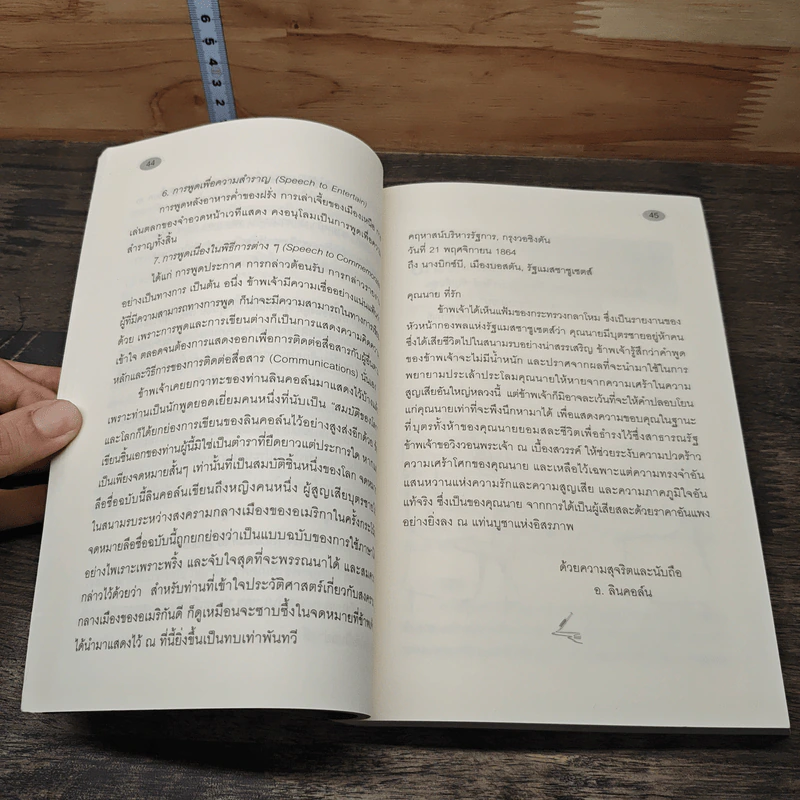 6
5
4
3
2
44
6. การพูดเพื่อความสำราญ (Speech to Entertain)
การพูดหลังอาหารค่ำของฝรั่ง การเล่าเจี้ยของเมืองเหนือ
เล่นตลกของจำอวดหน้าเวทีแสดง คงอนุโลมเป็นการพูดเพื่อความ
สำราญทั้งสิ้น
7. การพูดเนื่องในพิธีการต่าง ๆ (Speech to
ได้แก่ การพูดประกาศ การกล่าวต้อนรับ การกล่าวรายงาน
อย่างเป็นทางการ เป็นต้น อนึ่ง ข้าพเจ้ามีความเชื่ออย่างแน่นแฟ้น
ผู้ที่มีความสามารถทางการพูด ก็น่าจะมีความสามารถในทางการเขียน
ด้วย เพราะการพูดและการเขียนต่างก็เป็นการแสดงความคิดความ
เข้าใจ ตลอดจนต้องการแสดงออกเพื่อการติดต่อสื่อสารกับผู้อื่น
หลักและวิธีการของการติดต่อสื่อสาร (Communications) นั่นเอง
ข้าพเจ้าเคยยกวาทะของท่านลินคอล์นมาแสดงไว้บ้างแล้ว
เพราะท่านเป็นนักพูดยอดเยี่ยมคนหนึ่งที่นับเป็น "สมบัติของโลก
และโลกก็ได้ยกย่องการเขียนของลินคอล์นไว้อย่างสูงส่งอีกด้วย
เขียนชิ้นเอกของท่านผู้นี้มิใช่เป็นตำราที่ยืดยาวแต่ประการใด หาก
เป็นเพียงจดหมายสั้นๆ เท่านั้นที่เป็นสมบัติชิ้นหนึ่งของโลก
ลือชื่อฉบับนี้ลินคอล์นเขียนถึงหญิงคนหนึ่ง ผู้สูญเสียบุตรชาย
ในสนามรบระหว่างสงครามกลางเมืองของอเมริกาในครั้งกระนั้น
จดหมายลือชื่อฉบับนี้ถูกยกย่องว่าเป็นแบบฉบับของการใช้ภาษา
อย่างไพเราะเพราะพริ้ง และจับใจสุดที่จะพรรณนาได้ และสมควร
กล่าวไว้ด้วยว่า สำหรับท่านที่เข้าใจประวัติศาสตร์เกี่ยวกับสงคราม
กลางเมืองของอเมริกันดี ก็ดูเหมือนจะซาบซึ้งในจดหมายที่ข้าพเจ้า
ได้นำมาแสดงไว้ ณ ที่นี้ยิ่งขึ้นเป็นทบเท่าพันทวี
45
คฤหาสน์บริหารรัฐการ, กรุงวอชิงตัน
วันที่ 21 พฤศจิกายน 1864
ถึง นางบิกซ์บี, เมืองบอสตัน, รัฐแมสซาชูเซตส์
คุณนาย ที่รัก
ข้าพเจ้าได้เห็นแฟ้มของกระทรวงกลาโหม ซึ่งเป็นรายงานของ
หัวหน้ากองพลแห่งรัฐแมสซาชูเซตส์ว่า คุณนายมีบุตรชายอยู่ห้าคน
ซึ่งได้เสียชีวิตไปในสนามรบอย่างน่าสรรเสริญ ข้าพเจ้ารู้สึกว่าคำพูด
ของข้าพเจ้าจะไม่มีน้ำหนัก และปราศจากผลที่จะนำมาใช้ในการ
พยายามประเล้าประโลมคุณนายให้หายจากความเศร้าในความ
สูญเสียอันใหญ่หลวงนี้ แต่ข้าพเจ้าก็มิอาจละเว้นที่จะให้คำปลอบโยน
แก่คุณนายเท่าที่จะพึงนึกหามาได้ เพื่อแสดงความขอบคุณในฐานะ
ที่บุตรทั้งห้าของคุณนายยอมสละชีวิตเพื่อธำรงไว้ซึ่งสาธารณรัฐ
ข้าพเจ้าขอวิงวอนพระเจ้า ณ เบื้องสวรรค์ ให้ช่วยระงับความปวดร้าว
ความเศร้าโศกของคุณนาย และเหลือไว้เฉพาะแต่ความทรงจำอัน
แสนหวานแห่งความรักและความสูญเสีย และความภาคภูมิใจอัน
แท้จริง ซึ่งเป็นของคุณนาย จากการได้เป็นผู้เสียสละด้วยราคาอันแพง
อย่างยิ่งลง ณ แท่นบูชาแห่งอิสรภาพ
ด้วยความสุจริตและนับถือ
อ. ลินคอล์น